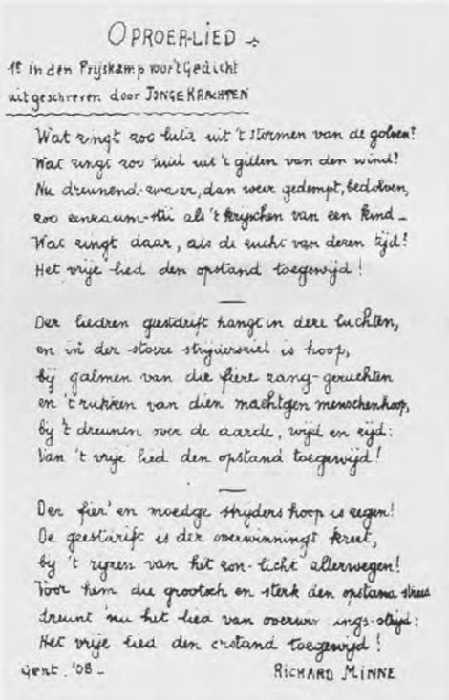 OPROER-LIED
1e in den Prijskamp voor 't Gedicht
uitgeschreven door JONGE KRACHTEN
Wat zingt zoo luid uit 't stormen van de golven?
Wat zingt zoo luid uit 't gillen van den wind?
Nu dreunend-zwaar, dan weer gedempt, bedolven,
zoo eenzaam-stil als 't krijschen van een kind_
Wat zingt daar, als de zucht van dezen tijd?
Het vrije lied den opstand toegewijd!
Der liedren geestdrift hangt in deze luchten,
en in der stoere strijdersziel is hoop,
bij galmen van die fiere zang-geruchten
en 't rukken van dien machtgen menschenhoop,
bij 't dreunen over de aarde, wijd en zijd:
Van 't vrije lied den opstand toegewijd!
Der fier' en moedge strijders hoop is zegen!
De geestdrift is der overwinnings kreet,
bij 't rijzen van het zon-licht allerwegen!
Voor hem die grootsch en sterk den opstand streed
dreunt nu het lied van overwinnings-strijd:
Het vrije lied den opstand toegewijd!
Gent. '08_
RICHARD MINNE